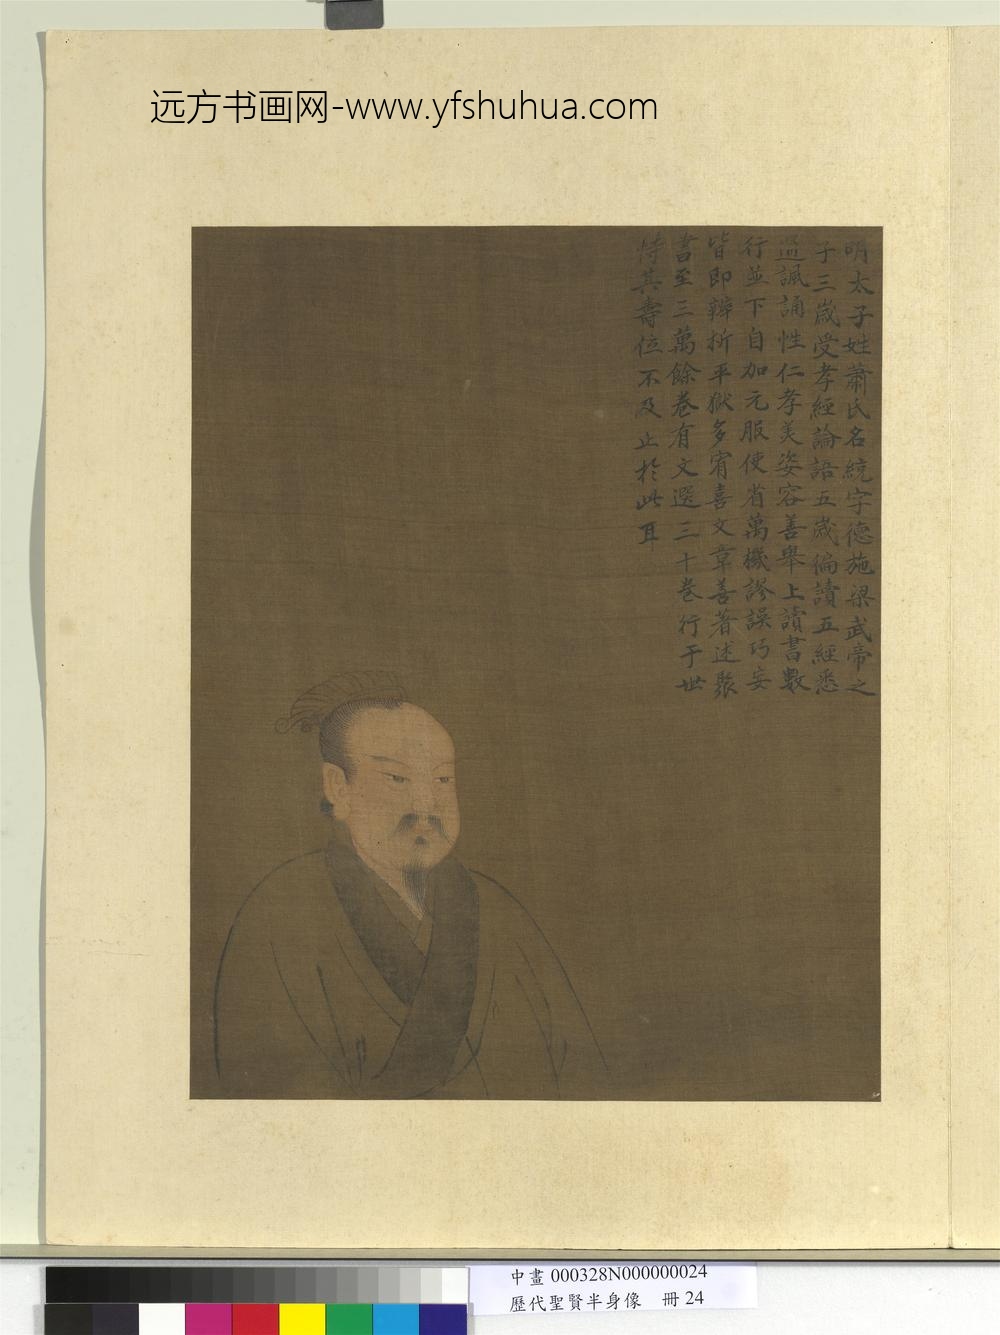 远方书画网-www.yfshuhua.com
明太子姓蕭氏名統字德施梁武帝之
子三歲受孝經論語五歲徧讀五經悉
通諷誦性仁孝美姿容善舉上讀書數
行並下自加元服使省萬機謬誤巧妄
皆即辯折平獄多宥喜文章善著述聚
書至三萬餘卷有文選三十卷行于世
恃其壽位不及止於此耳
中畫 000328N000000024
歷代聖賢半身像 冊 24